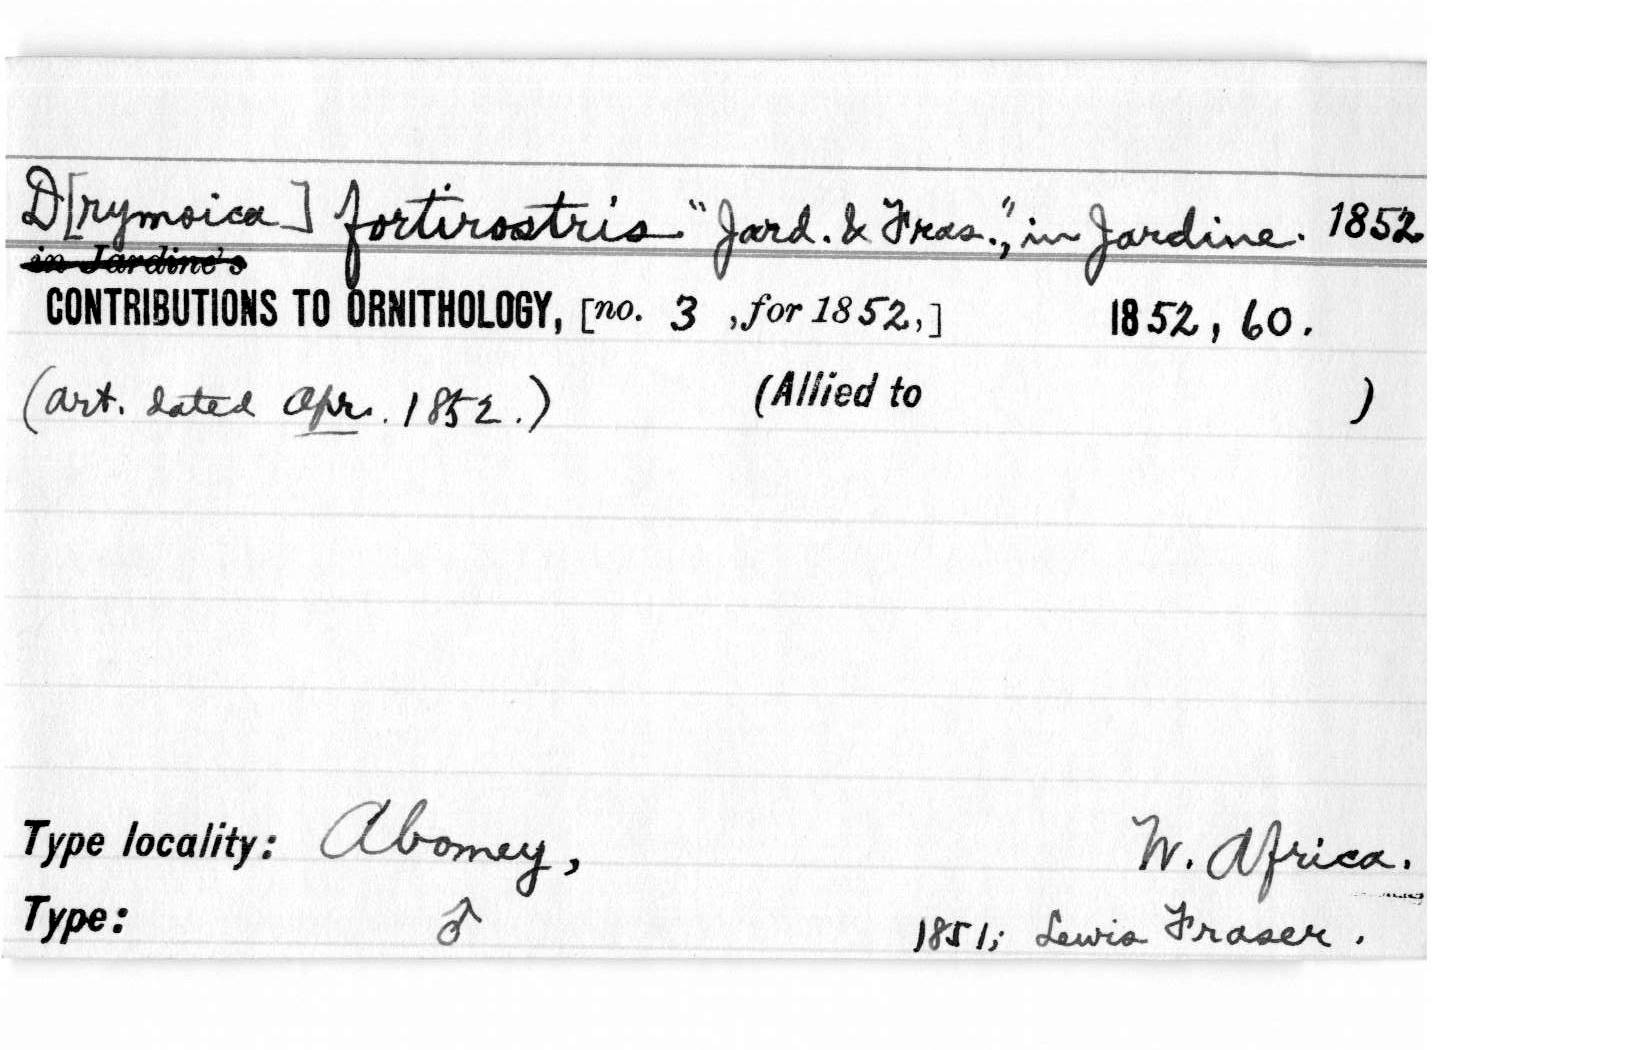 D[rymoica] fortirostris "Jard. & Fras.," in Jardine. 1852
in Jardine's
CONTRIBUTIONS TO ORNITHOLOGY, [no. 3 ,for 1852,] 1852, 60.
(art. dated Apr. 1852.) (Allied to )
Type locality: Abomey, W. Africa.
Type: ♂ 1851; Lewis Fraser.